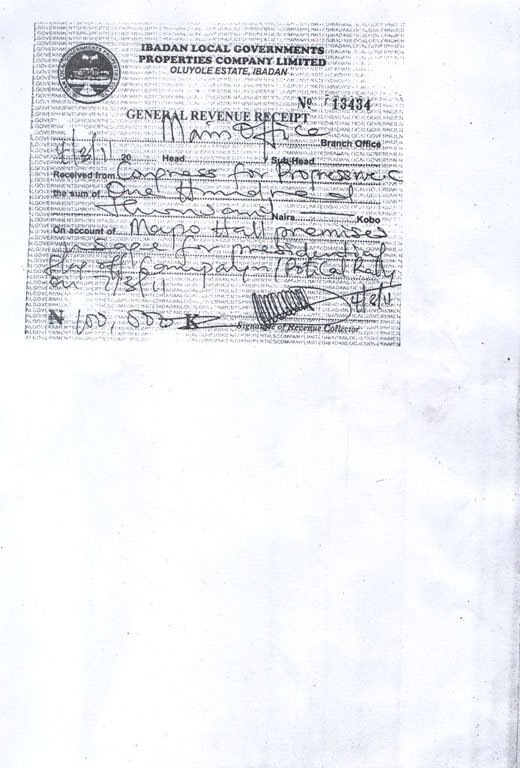 IBADAN LOCAL GOVERNMENTS
PROPERTIES COMPANY LIMITED
OLUYOLE ESTATE, IBADAN
No 13434
GENERAL REVENUE RECEIPT
Main Office Branch Office
4/3/11 20 Head Sub-Head
Received from Congress for Progressive C
the sum of One Hundred
Thousand Naira Kobo
On account of Mapo Hall premises
usage for presidential
flag off Campaign/Political Rally
on 7/3/11
4/3/11
N 100,000 K
Signature of Revenue Collector